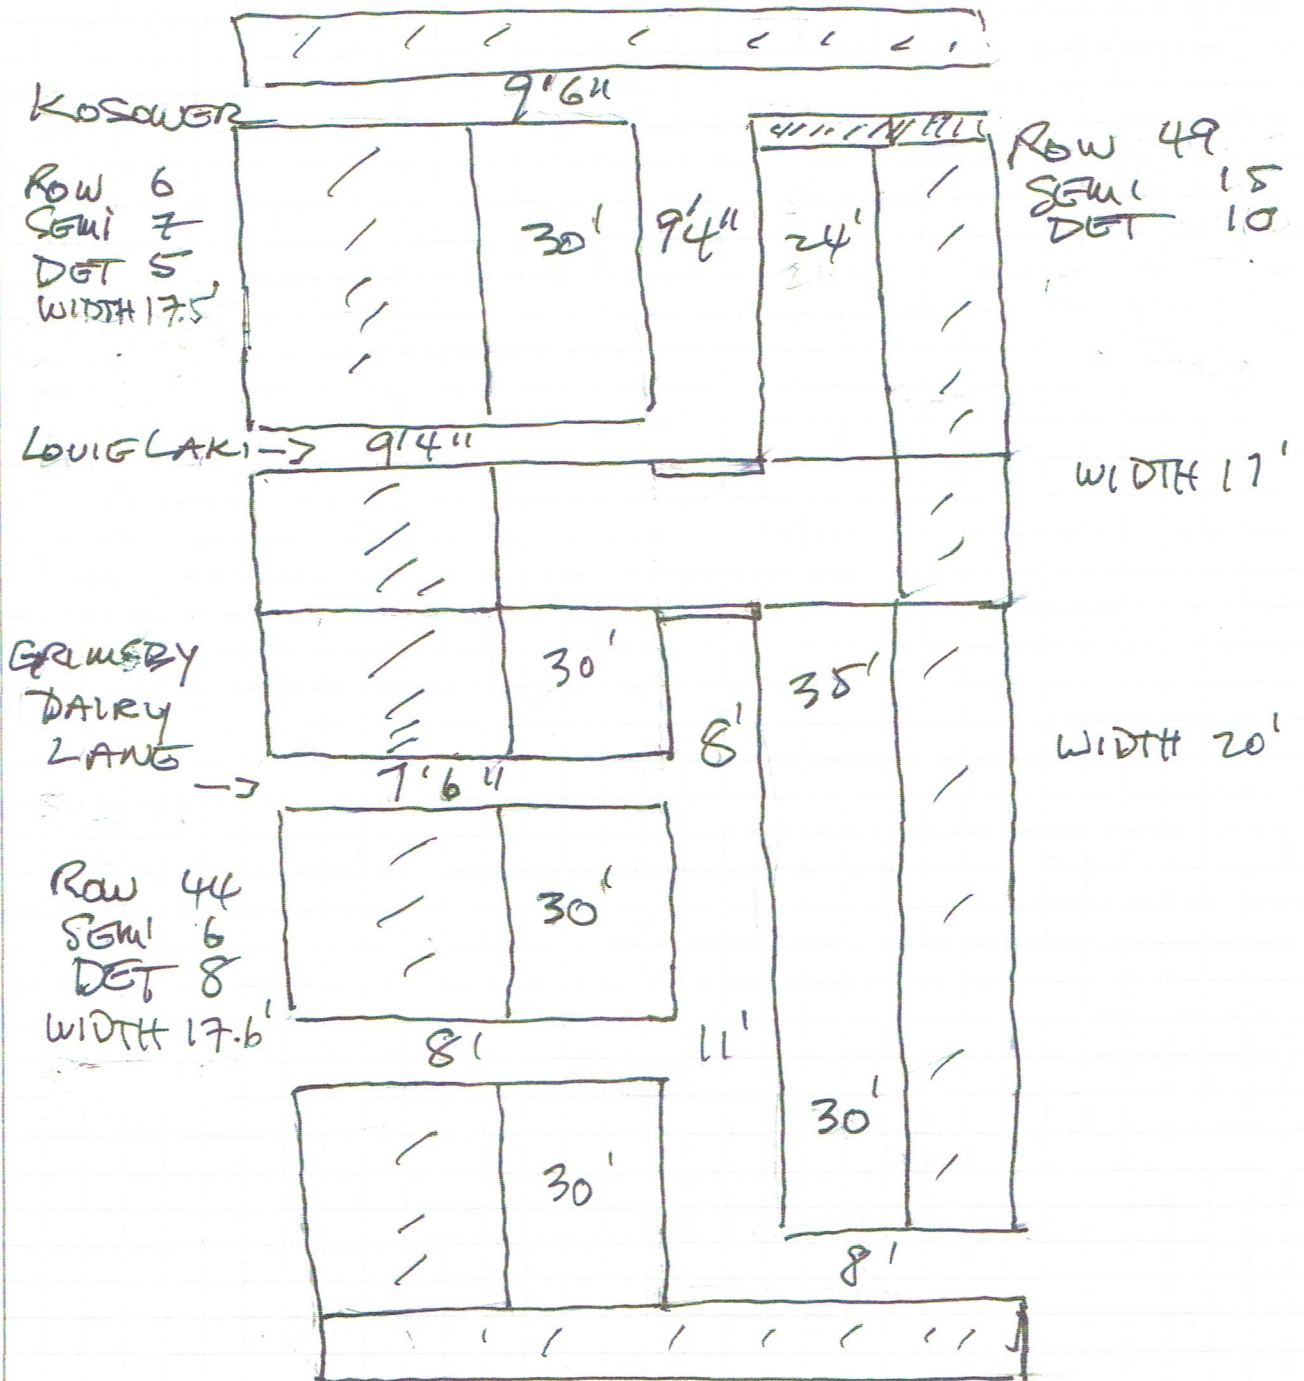 9'6"
KOSOWER
ROW 6
SEMI 7
DET 5
WIDTH 17.5'
30'
9'4"
24'
ROW 49
SEMI 15
DET 10
LOUIE LAKI ->
9'4"
WIDTH 17'
GRIMSBY
DAIRY
LANE
->
30'
35'
8'
WIDTH 20'
7'6"
ROW 44
SEMI 6
DET 8
WIDTH 17.6'
30'
8'
11'
30'
30'
8'